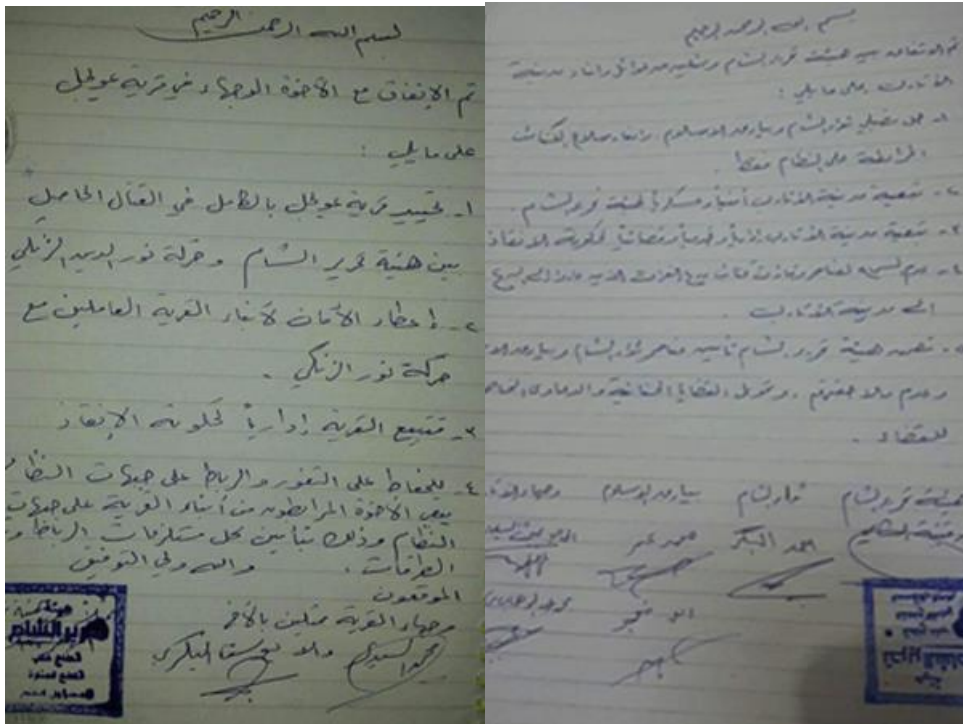 بسم الله الرحمن الرحيم
تم الإتفاق مع الأخوة الوجهاء في قرية عويجل
على ما يلي :
١- تحييد قرية عويجل بالكامل في القتال الحاصل
بين هيئة تحرير الشام و حركة نور الدين الزنكي
٢- إعطاء الأمان لأبناء القرية العاملين مع
حركة نور الزنكي .
٣- تتبع القرية إدارياً لحكومة الإنقاذ
٤- للحفاظ على الثغور والرباط على جبهات النظا
يبقى الأخوة المرابطون من أبناء القرية على جبهات
النظام وذلك بتأمين كل مستلزمات الرباط و
الطرقات . والله ولي التوفيق
الموقعون
وجهاء القرية ممثلين بالأخ
محمد والأخ يوسف البكري
هيئة
تحرير الشام
بسم الله الرحمن الرحيم
تم الاتفاق بين هيئة تحرير الشام و مدينة
الأتارب على ما يلي :
١- حل فصيلي ثوار الشام وبيارق الإسلام وإبقاء سلاح الكتائب
المرابطة على النظام فقط .
٢- تبعية مدينة الأتارب أمنياً وعسكرياً لهيئة تحرير الشام
٣- تبعية مدينة الأتارب إدارياً وخدمياً وقضائياً لحكومة الإنقاذ
٤- عدم
إلى مدينة الأتارب .
٥- تضمن هيئة تحرير الشام تأمين عناصر ثوار الشام وبيارق الا
وعدم ملاحقتهم . وتحول القضايا الجنائية والدعاوى الخاصة
للقضاء .
هيئة تحرير الشام ثوار الشام بيارق الإسلام
أحمد البكر محمد عمر
أبو